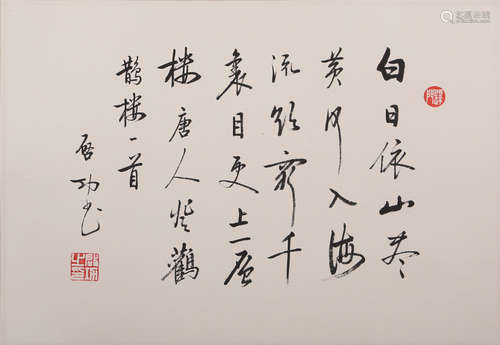 白日依山尽
黄河入海
流欲穷千
里目更上一层
楼唐人登鸛
鵲楼一首
启功书